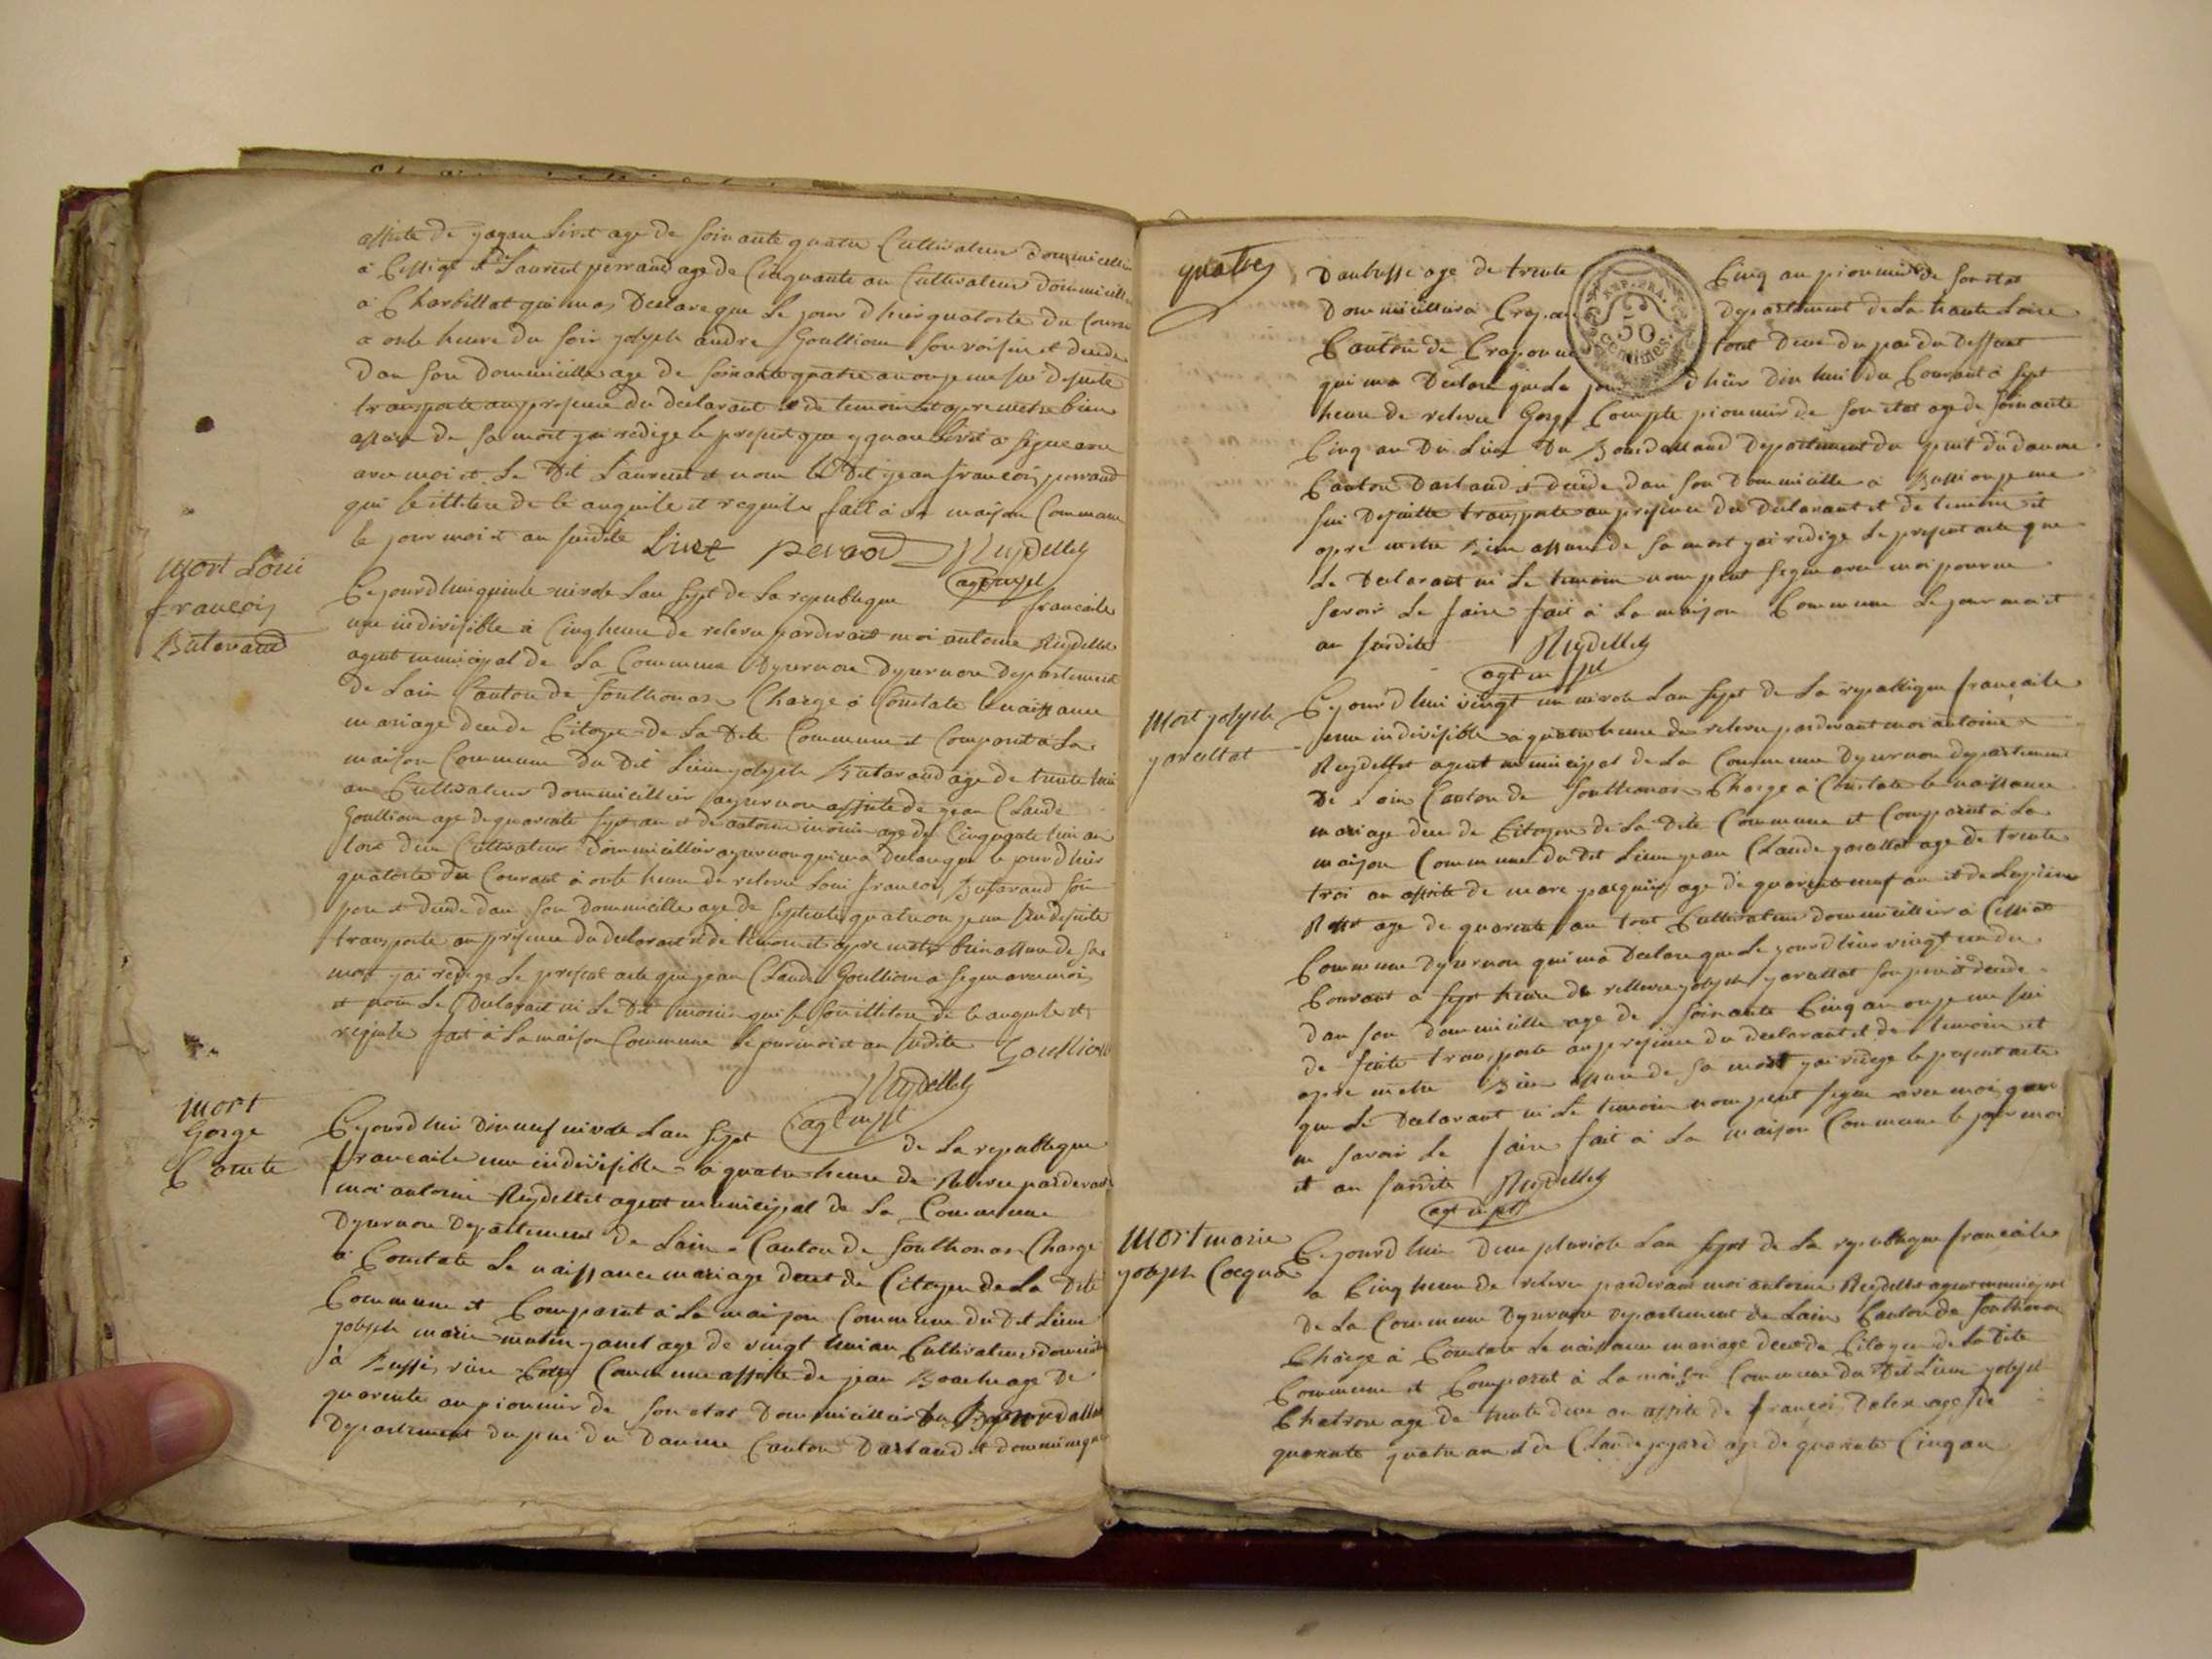 assisté de Livet age de soixante quatre Cultivateur dommicillier
à et de Laurent perraud age de Cinquante an Cultivateur dommicillier
à Charbillat qui ma Declare que Le jour d hier quatorte du Couran
a onte heure du soir joseph andre Goullion son voisin et decede
Dan son Dommicille age de soixante quatre an ou je me sui de suite
transporte au presence du declarant et de temoin et apre metre bien
assure de sa mort jai redige le present que Livet a signe
avec moi et Le Dit Laurent et non le Dit jean francois perraud
qui de ce enquis et requis fait à La maison Commune
le jour moi et an susdite Livet peraod Reydellet
agt mpl
mort Loui
francois
Butavand
Cejourdhui quinte nivose Lan sept de La republique francaite
une indivisible à Cinq heure de releve pardevant moi antoine Reydellet
agent municipal de La Commune Dyzernore Departement
de Lain Canton de Sonthonas Charge à Constate Le naissance
mariage decede Citoyen de La Dite Commune et Comparut à La
maison Commune Du Dit Lieu joseph Butavand age de trente hui
an Cultivateur dommicillier assisté de jean Claude
Goullion age de quarente sept an et de antoine monin age de Cinquante hui an
tous deux Cultivateur Dommicillier qui ma declare que le jour d hier
quatorte du Courant à onte heure de releve Loui francois Butavand son
pere et decede dan son dommicille age de septente quatre an ou je me sui de suite
transporte au presence du declarant et de temoin et apre metre bien assure de sa
mort jai redige Le present acte que jean Claude Goullion a signe avec moi
et non Le Declarant ni Le Dit monin qui de ce enquis et
requis fait à La maison Commune Le jour moi et an susdite Goullion
Reydellet
agt mpl
mort
Gorge
Comte
Cejourdhui Dix neuf nivose Lan sept de La republique
francaite une indivisible à quatre heure de Releve pardevant
moi antoine Reydellet agent municipal de La Commune
Departement de Lain Canton de Sonthonas Charge
à Constate Le naissance mariage decet de Citoyen de La Dite
Commune et Comparut à La maison Commune du Dit Lieu
joseph marie age de vingt hui an Cultivateur
à Bussi Commune assisté de jean age De
quarente an pionnier de son etat Dommicillier
Departement du pui du Daume Canton Darland et dominique
quatre
Daubusse age de trente Cinq an pionnier de son etat
Dommicillier à Crap Departement de La haute Loire
Canton de Craponne tout Deux du du Deffunt
qui ma Declare que Le jour d hier Dix hui du Courant à sept
heure de releve Gorge Compte pionnier de son etat age de soixante
Cinq an Du Lieu Du Departement du puit du daume
Canton Darland et decede dan son Dommicille à Bussi ou je me
sui De suitte transporte au presence du Declarant et de temoin et
apre metre Bien assure de sa mort jai redige Le present acte que
Le Declarant ni Le temoin nom peut signe avec moi pour ne
savoir Le faire fait à La maison Commune Le jour moi et
an susdite Reydellet
agt mpl
REP. FRA.
50
Centimes
Mort joseph
javellat
Cejourd hui vingt un nivose Lan sept de La republique francaite
une indivisible à quatre heure de releve pardevant moi antoine
Reydellet agent municipal de La Commune Dyzernore departement
De Lain Canton de Sonthonas Charge à Constate le naissance
mariage decede Citoyen de La Dite Commune et Comparut à La
maison Commune du Dit Lieu jean Claude javallat age de trente
troi an assisté de marc age de quarente neuf an et de
age de quarente an tout Cultivateur dommicillier à
Commune Dyzernore qui ma Declare que Le jourd hier vingt du
Courant à sept heure de relleve joseph javallat son pere et decede
dan son dommicille age de soixante Cinq an ou je me sui
de suite transporte au presence du declarant et de temoin et
apre metre Bien assure de sa mort jai redige le present acte
que Le Declarant ni Le temoin nom peut signe avec moi pour
ne savoir Le faire fait à La maison Commune le jour moi
et an susdite Reydellet
agt mpl
Mort marie
joseph Cocqua
Cejourd hui deux pluviose Lan sept de La republique francaite
à Cinq heure de releve pardevant moi antoine Reydellet agent municipal
De La Commune Dyzernore departement de Lain Canton de Sonthonas
Charge à Constate Le naissance mariage decede Citoyen de La Dite
Commune et Comparut à La maison Commune du Dit Lieu joseph
Chatron age de trente deux an assisté de francois age De
quarente quatre an et de Claude age de quarente Cinq an